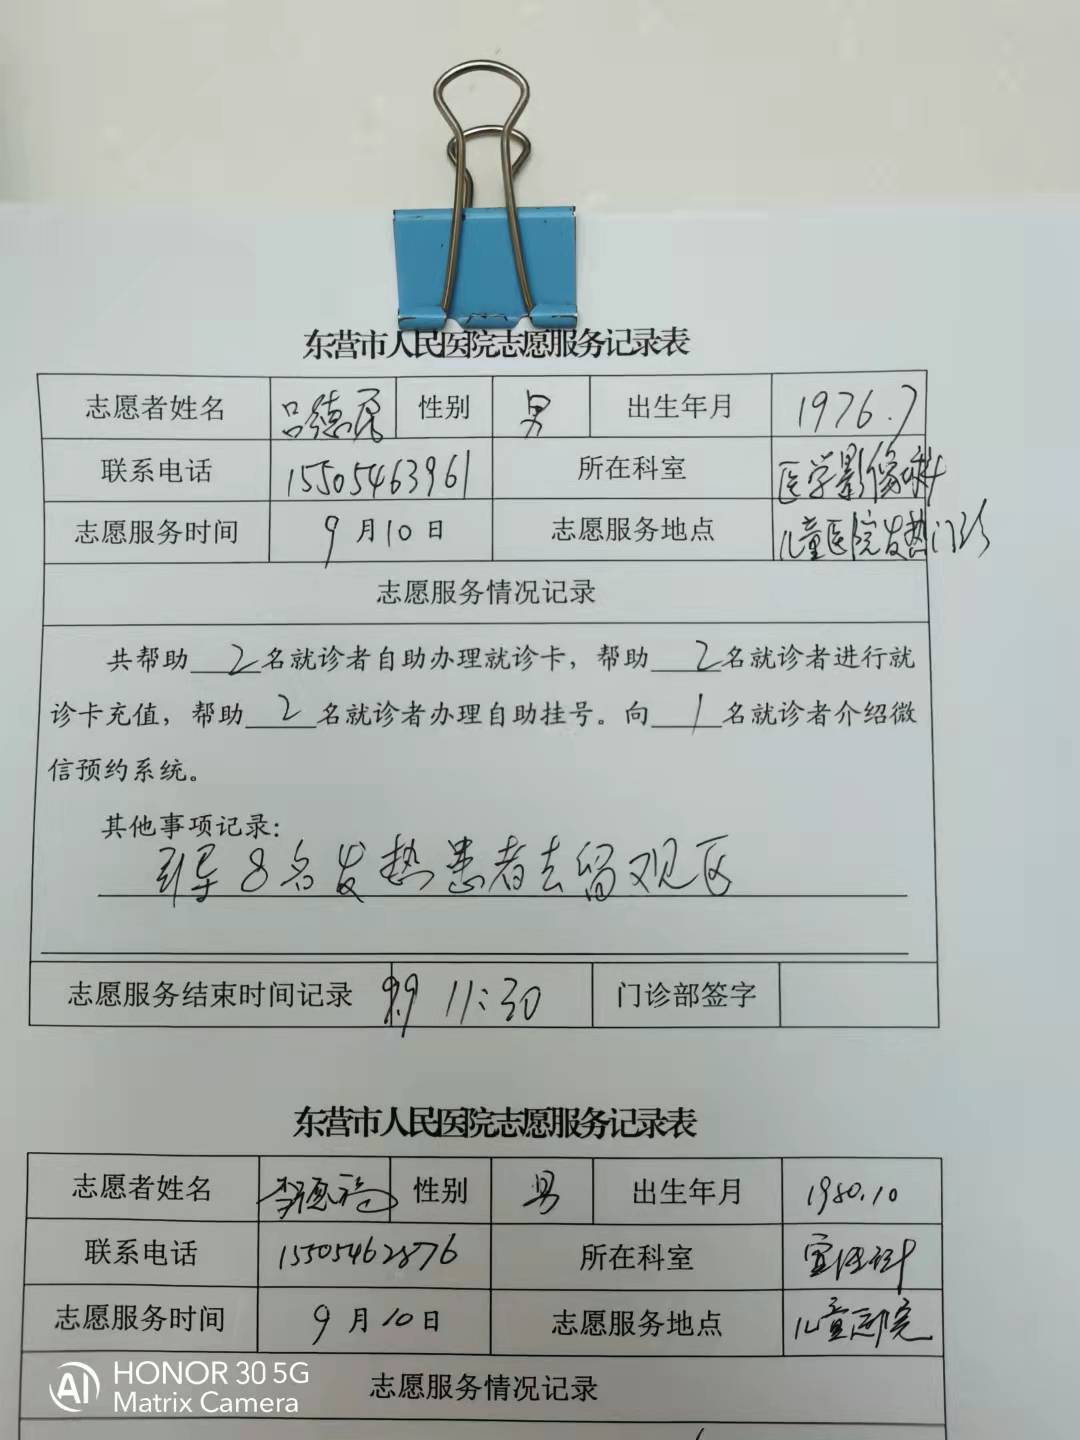 东营市人民医院志愿服务记录表
志愿者姓名 吕德展 性别 男 出生年月 1976.7
联系电话 15505463961 所在科室 医学影像科
志愿服务时间 9月10日 志愿服务地点 儿童医院发热门诊
志愿服务情况记录
共帮助2名就诊者自助办理就诊卡，帮助2名就诊者进行就
诊卡充值，帮助2名就诊者办理自助挂号。向1名就诊者介绍微
信预约系统。
其他事项记录：
引导8名发热患者去留观区
志愿服务结束时间记录 9.9 11:30 门诊部签字
东营市人民医院志愿服务记录表
志愿者姓名 李德福 性别 男 出生年月 1980.10
联系电话 15505462876 所在科室 宣传科
志愿服务时间 9月10日 志愿服务地点 儿童医院
志愿服务情况记录
HONOR 30 5G
AI Matrix Camera